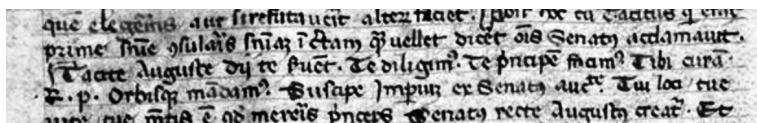 que elegeritis aut si refutaverit alterum faciet. Post hoc cū Tacitus qͥ erat
prime snīe ꝯsularis snīaꝫ ītam q̄ vellet dicēt oīs Senatꝰ acclamavit.
Tacite Auguste dij te ẜuēt. Te diligimꝰ. Te pͥncipē facimꝰ. Tibi curā
R. p. Orbisqꝫ mādamꝰ. Suscipe Impiuꝫ ex Senatꝰ auctᵗᵉ. Tui loci tue
vite tue mētis ē qd mereris pͥnceps Senatꝰ recte Augustꝰ creatͬ. Et